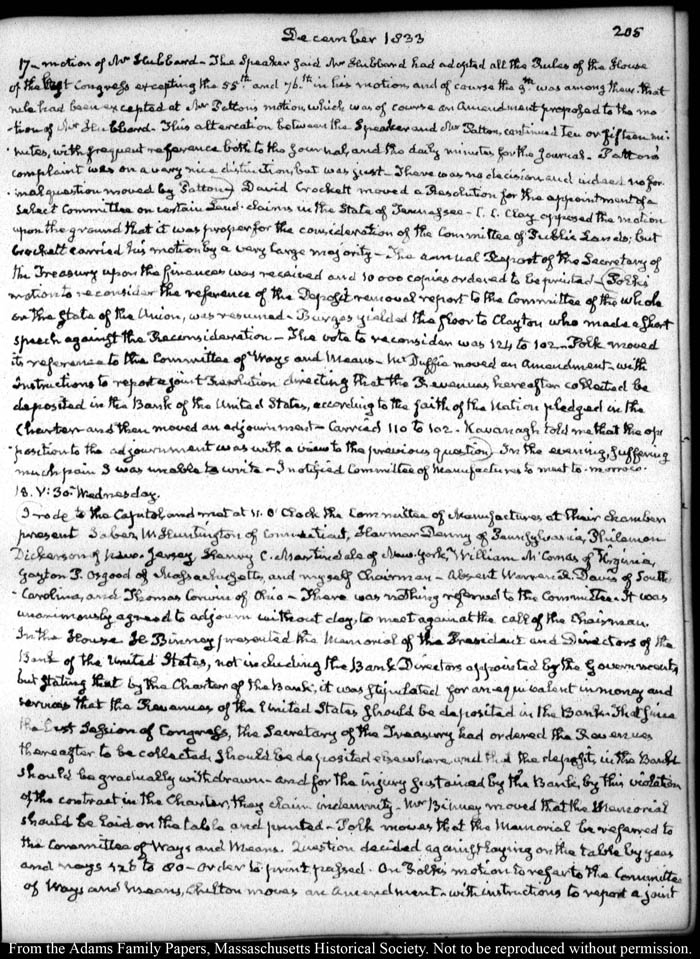 December 1833
205
17 – motion of Mr Hubbard – The Speaker said Mr Hubbard had adopted all the Rules of the House
of the last Congress excepting the 55th and 76th in his motion, and of course the 9th was among them. that
rule had been excepted at Mr Patton's motion, which was of course an Amendment proposed to the mo
-tion of Mr Hubbard – This altercation between the Speaker and Mr Patton, continued ten or fifteen mi-
-nutes, with frequent reference both to the Journal, and the daily minutes for the Journal – Patton's
complaint was on a very nice distinction, but was just – There was no decision and indeed no for-
-mal question moved by Patton – David Crockett moved a Resolution for the appointment of a
Select Committee on certain Land-claims in the State of Tennessee – C. C. Clay opposed the motion
upon the ground that it was proper for the consideration of the Committee of Public Lands; but
Crockett carried his motion by a very large majority – The annual Report of the Secretary of
the Treasury upon the finances was received and 10000 copies ordered to be printed – Polk's
motion to reconsider the reference of the Deposit removal report to the Committee of the whole
on the State of the Union, was resumed – Burges yielded the floor to Clayton who made a short
speech against the Reconsideration – The vote to reconsider was 124 to 102 – Polk moved
its reference to the Committee of Ways and Means – McDuffie moved an Amendment – with
Instructions to report a joint Resolution directing that the Revenues hereafter collected be
deposited in the Bank of the United States, according to the faith of the Nation pledged in the
Charter and then moved an adjournment – Carried 110 to 102. Kavanagh told me that the op
-position to the adjournment was with a view to the previous question. In the evening, suffering
much pain I was unable to write – I notified Committee of Manufactures to meet to-morrow.
18. V: 30. Wednesday.
I rode to the Capitol, and met at 11. O'Clock the Committee of Manufactures at their chamber
present Jabez W Huntington of Connecticut, Harmar Denny of Pennsylvania, Philemon
Dickerson of New-Jersey, Henry C. Martindale of New-York, William McComas of Virginia,
Gayton P. Osgood of Massachusetts, and myself Chairman – Absent Warren R. Davis of South-
-Carolina, and Thomas Corwin of Ohio – There was nothing referred to the Committee. It was
unanimously agreed to adjourn without day, to meet again at the call of the Chairman.
In the House H Binney presented the Memorial of the President and Directors of the
Bank of the United States, not including the Bank Directors appointed by the Government,
but stating that by the Charter of the Bank, it was stipulated for an equivalent in money and
services that the Revenues of the United States should be deposited in the Bank. That since
the last Session of Congress, the Secretary of the Treasury had ordered the Revenues
thereafter to be collected, should be deposited elsewhere and that the deposits in the Bank
should be gradually withdrawn – and for the injury sustained by the Bank, by this violation
of the contract in the Charter, they claim indemnity – Mr Binney moved that the Memorial
should be laid on the table and printed – Polk moves that the Memorial be referred to
the Committee of Ways and Means. Question decided against laying on the table by yeas
and nays to 80 – Order to print passed. On Polk's motion to refer to the Committee
of Ways and Means, Chilton moves an Amendment – with instructions to report a joint
From the Adams Family Papers, Massachusetts Historical Society. Not to be reproduced without permission.